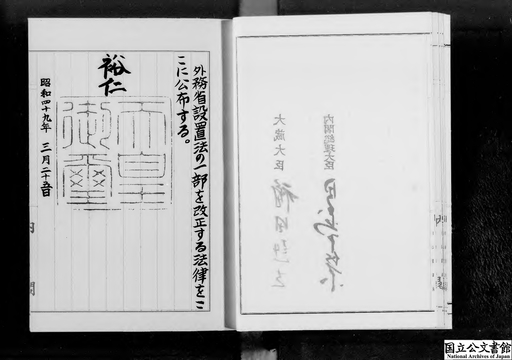 外務省設置法の一部を改正する法律をこ
こに公布する。
裕仁
天皇御璽
昭和四十九年 三月二十五日
内閣総理大臣
大蔵大臣
国立公文書館
National Archives of Japan